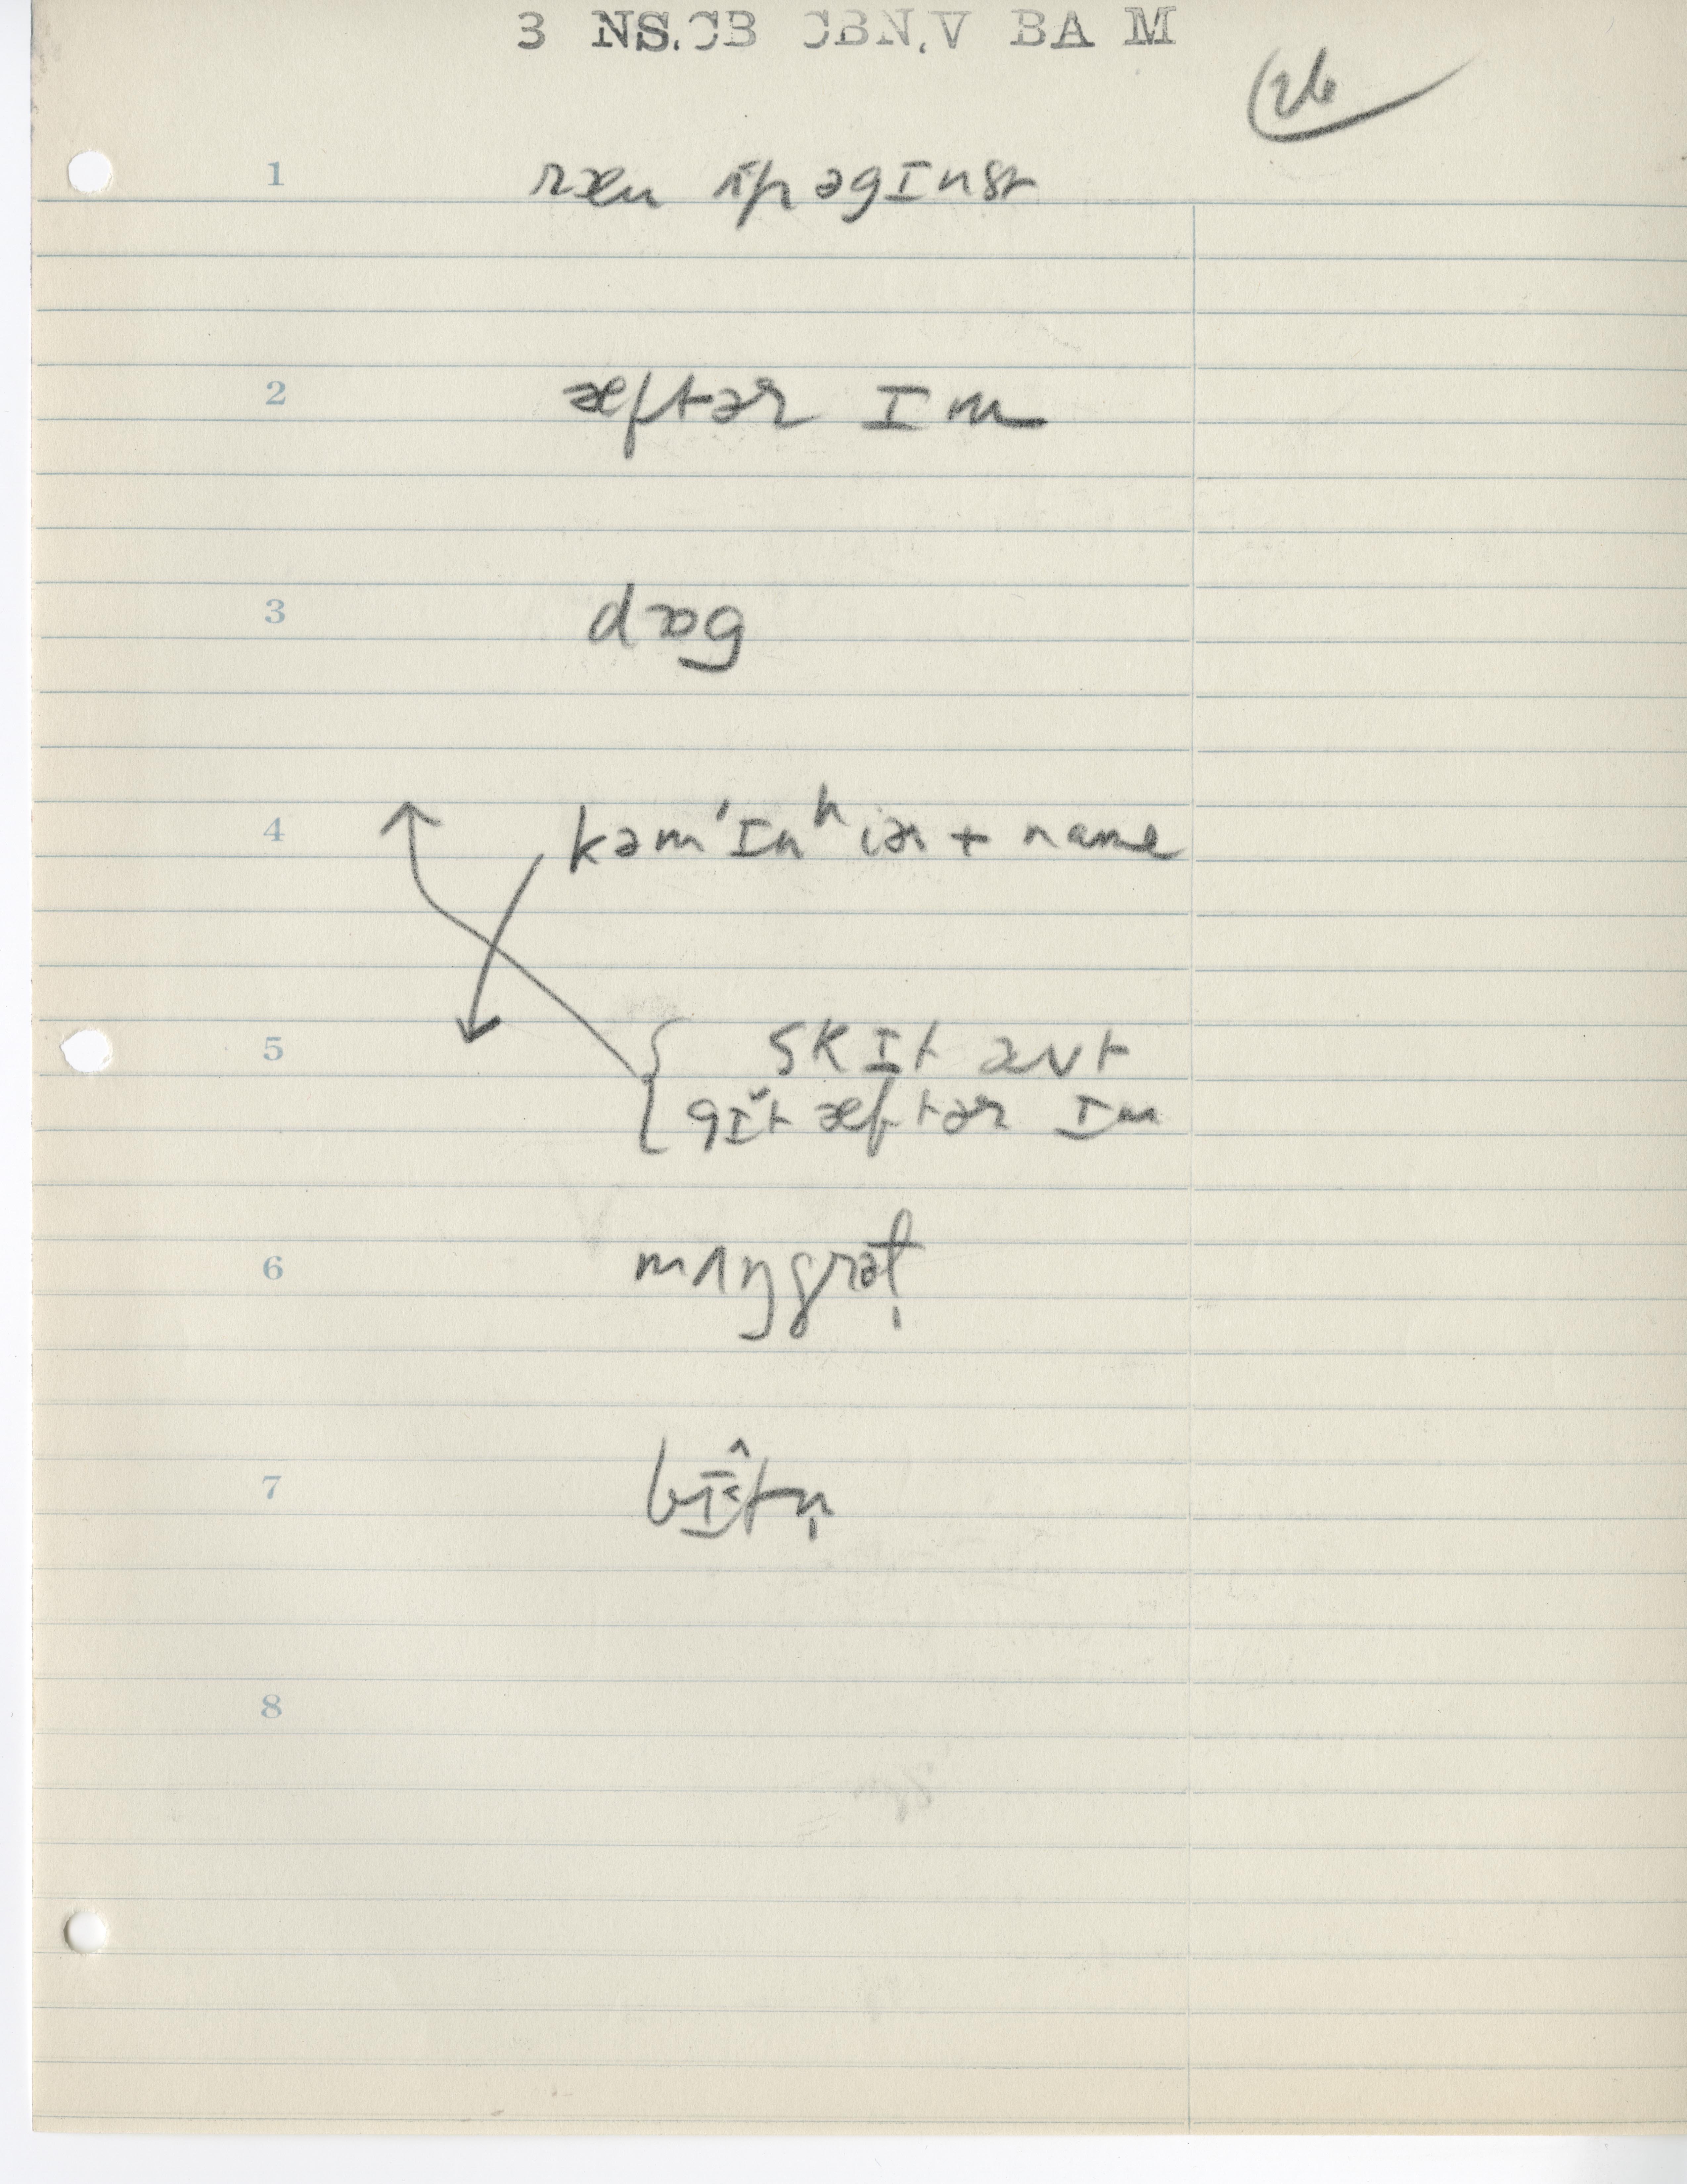 3 NS.CB CBN.V BA M
26
1 ræn ʌp əgɪnst
2 æftər ɪm
3 dɔg
4 kəm'ɪnʰiər + name
5 skɪt aʊt
gɪt æftər ɪm
6 mʌŋgrəl
7 bɪtn̩
8